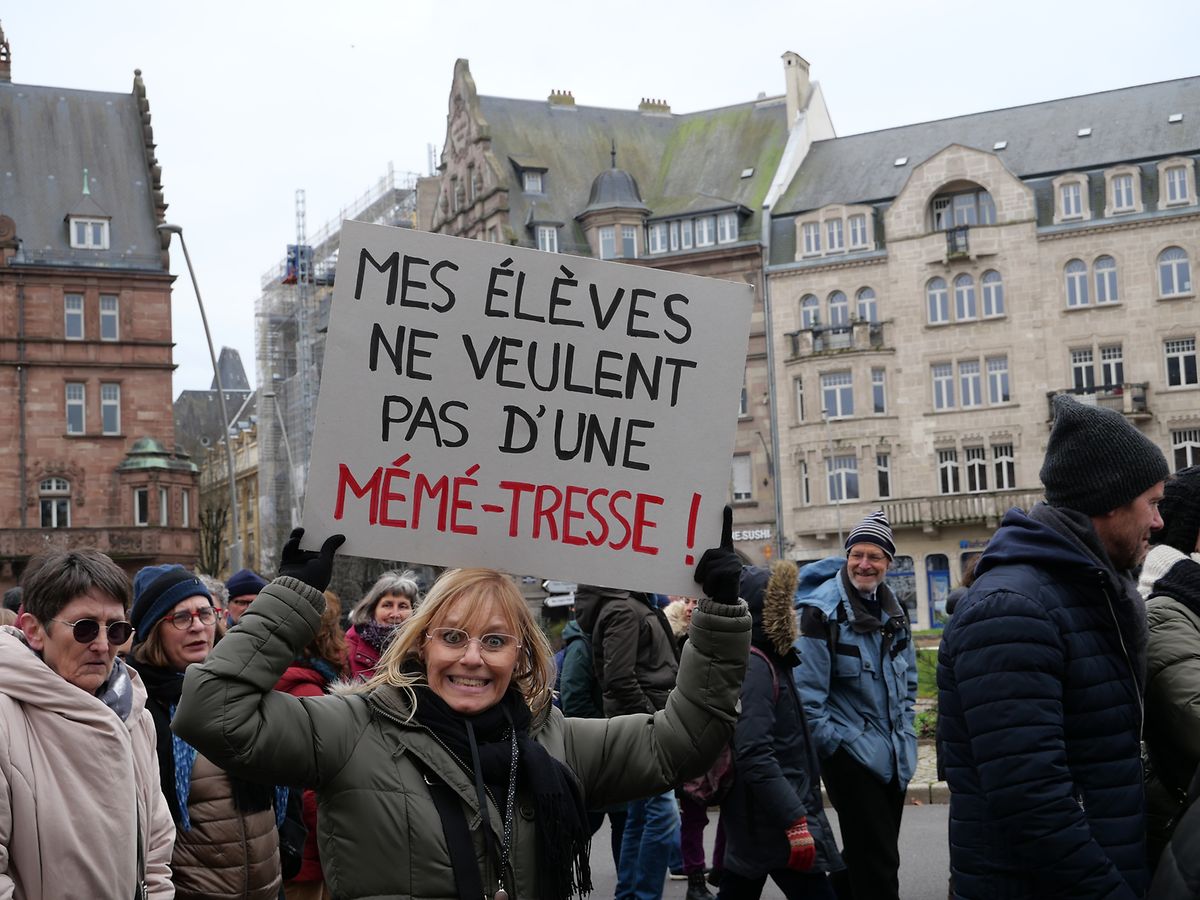 MES ÉLÈVES
NE VEULENT
PAS D'UNE
MÉMÉ-TRESSE !